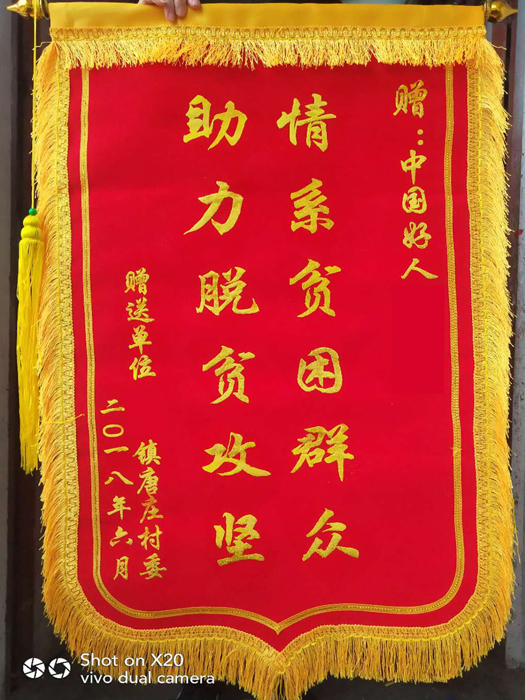 赠：中国好人
情系贫困群众
助力脱贫攻坚
赠送单位
镇唐庄村委
二〇一八年六月
Shot on X20
vivo dual camera